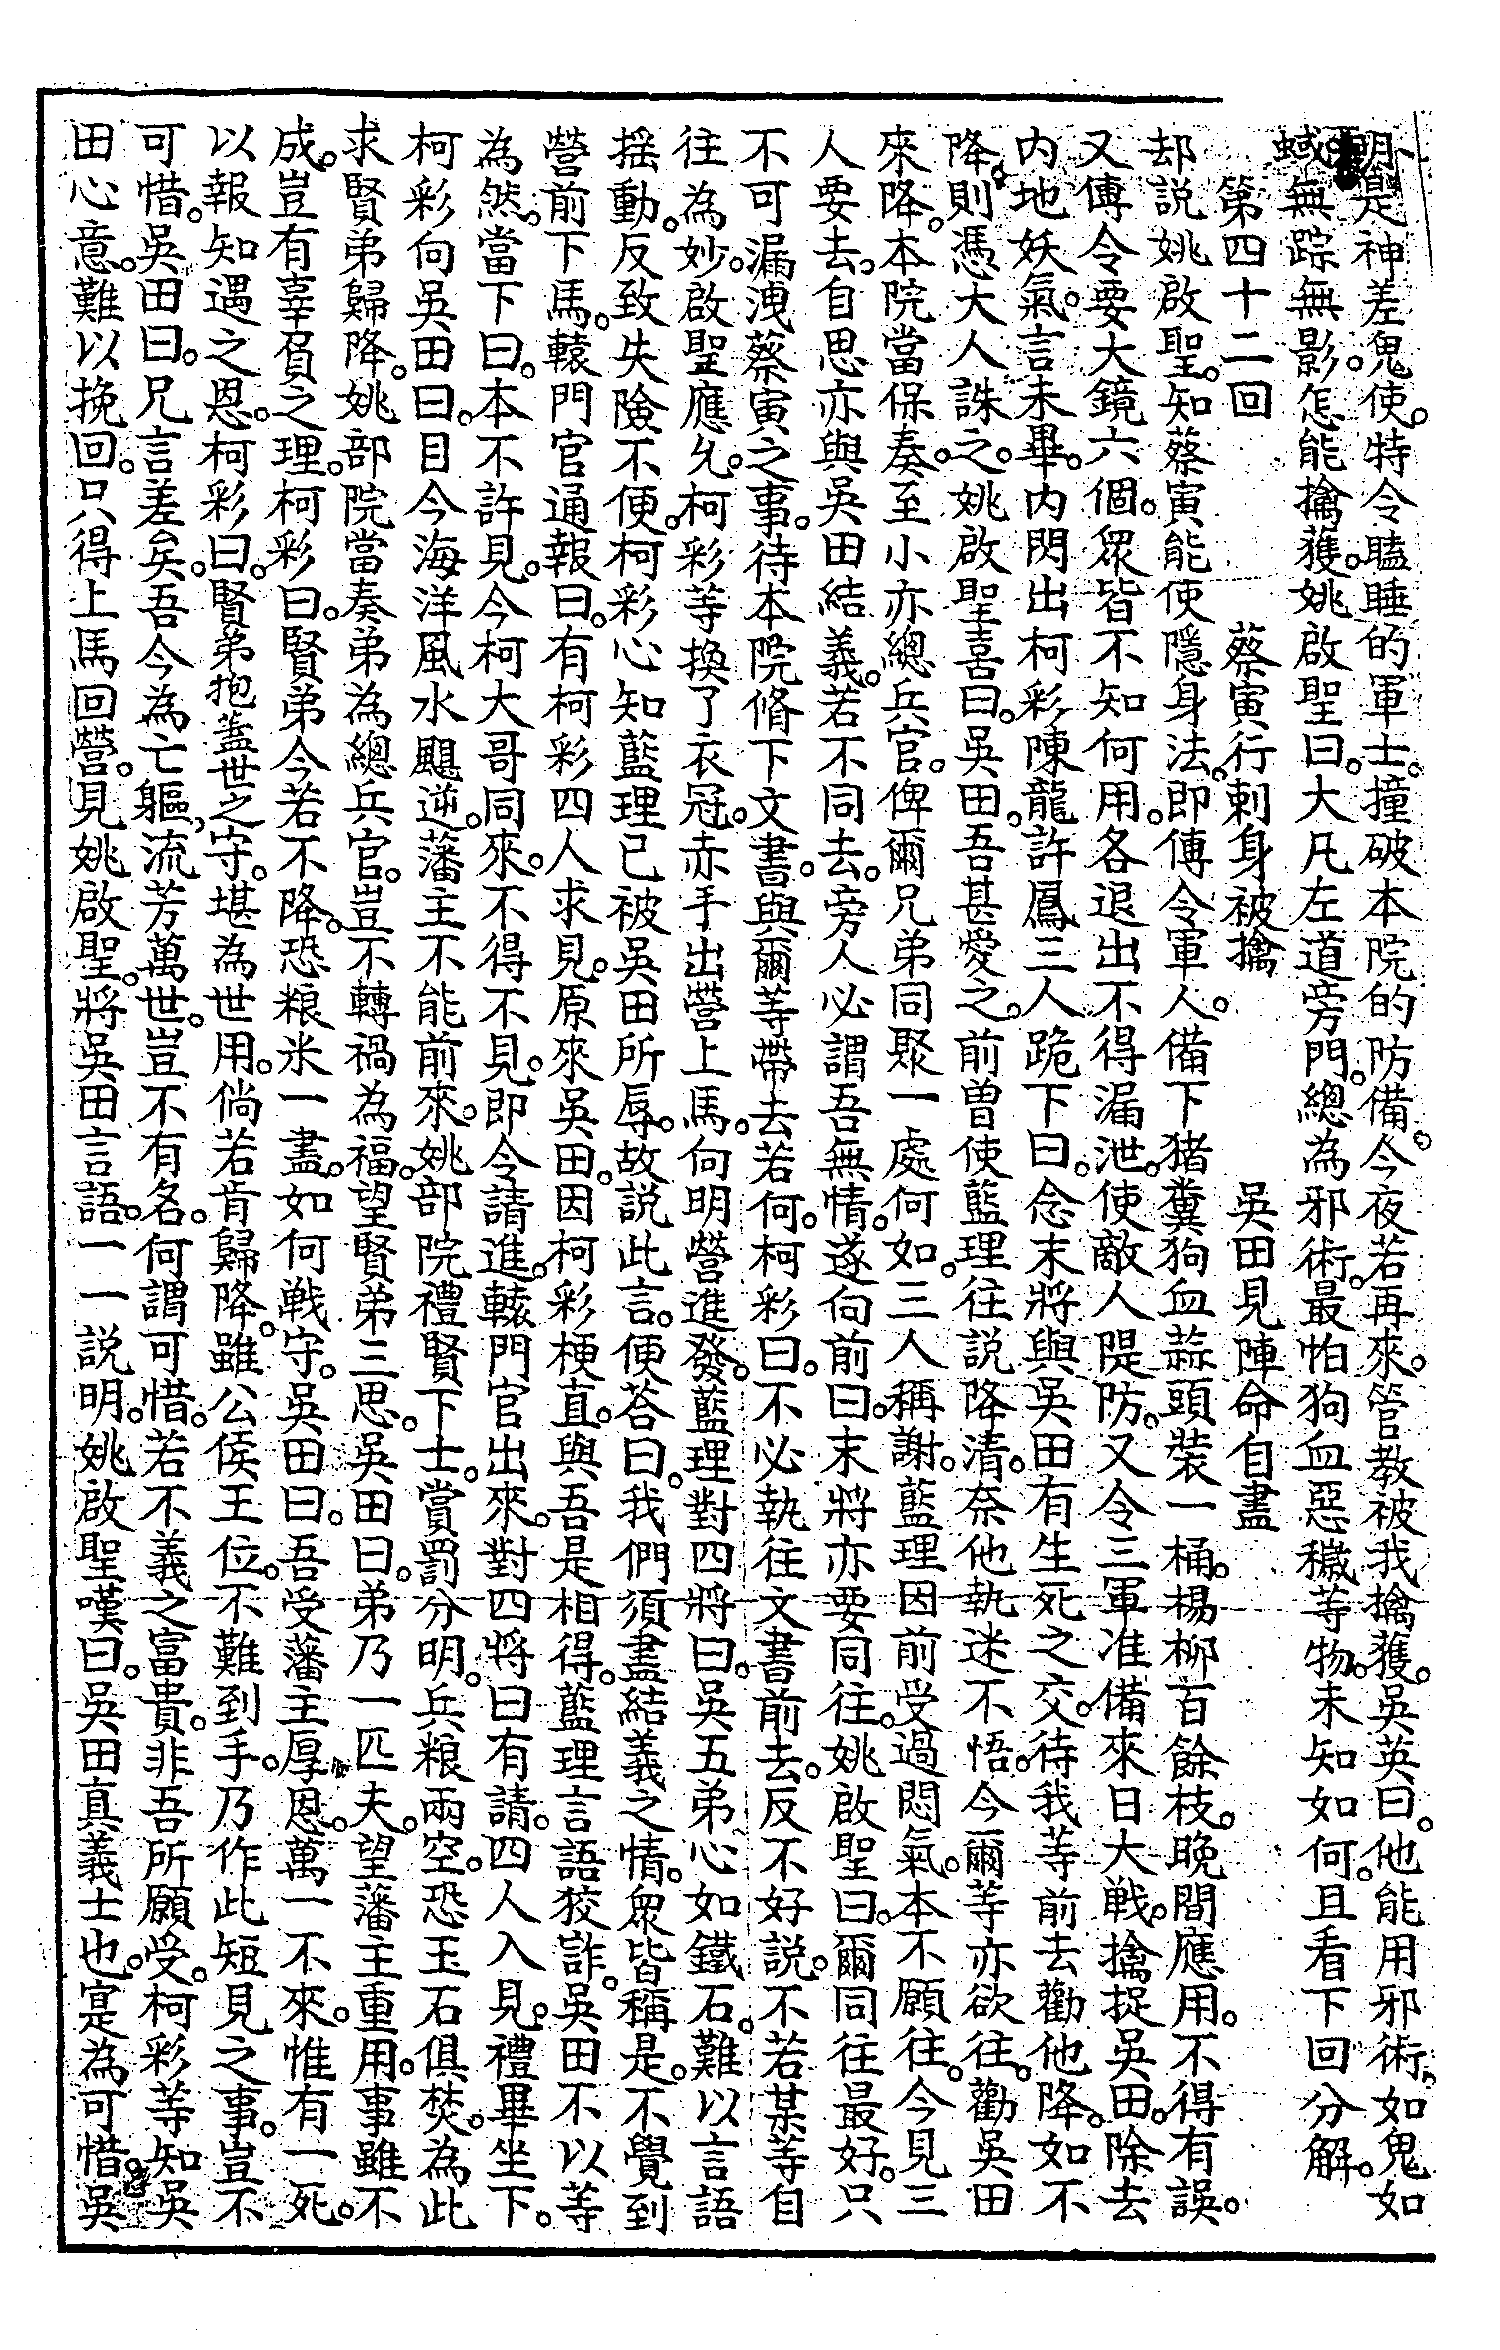 明是神差鬼使。特令瞌睡的軍士。撞破本院的防備。今夜若再來。管教被我擒獲。吳英曰。他能用邪術。如鬼如
蜮無踪無影。怎能擒獲。姚啟聖曰。大凡左道旁門。總為邪術。最怕狗血惡穢等物。未知如何。且看下回分解。
第四十二回　蔡寅行刺身被擒　吳田見陣命自盡
却説姚啟聖。知蔡寅能使隱身法。即傳令軍人。備下猪糞狗血蒜頭裝一桶。楊柳百餘枝。晚間應用。不得有誤。
又傳令要大鏡六個。眾皆不知何用。各退出不得漏泄。使敵人隄防。又令三軍准備來日大戰。擒捉吳田。除去
内地妖氣。言未畢。内閃出柯彩陳龍許鳳三人跪下曰。念末將與吳田有生死之交。待我等前去勸他降。如不
降。則憑大人誅之。姚啟聖喜曰。吳田。吾甚愛之。前曾使藍理往説降清。奈他執迷不悟。今爾等亦欲往。勸吳田
來降。本院當保奏。至小亦總兵官。俾爾兄弟同聚一處何如。三人稱謝。藍理因前受過悶氣。本不願往。今見三
人要去。自思亦與吳田結義。若不同去。旁人必謂吾無情。遂向前曰。末將亦要同往。姚啟聖曰。爾同往最好。只
不可漏洩蔡寅之事。待本院脩下文書。與爾等帶去若何。柯彩曰。不必執往文書前去。反不好説。不若某等自
往為妙。啟聖應允。柯彩等換了衣冠。赤手出營上馬。向明營進發。藍理對四將曰。吳五弟心如鐵石。難以言語
搖動。反致失險不便。柯彩心知藍理已被吳田所辱。故説此言。便荅曰。我們須盡結義之情。眾皆稱是。不覺到
營前下馬。轅門官通報曰。有柯彩四人求見。原來吳田。因柯彩梗直。與吾是相得。藍理言語狡詐。吳田不以等
為然。當下曰。本不許見。今柯大哥同來。不得不見。即令請進。轅門官出來。對四將曰有請。四人入見。禮畢坐下。
柯彩向吳田曰。目今海洋風水颶逆。藩主不能前來。姚部院禮賢下士。賞罰分明。兵粮兩空。恐玉石俱焚。為此
求賢弟歸降。姚部院當奏弟為總兵官。豈不轉禍為福。望賢弟三思。吳田曰。弟乃一匹夫。望藩主重用。事雖不
成。豈有辜負之理。柯彩曰。賢弟今若不降。恐粮米一盡。如何戰守。吳田曰。吾受藩主厚恩。萬一不來。惟有一死。
以報知遇之恩。柯彩曰。賢弟抱蓋世之守。堪為世用。倘若肯歸降。雖公侯王位。不難到手。乃作此短見之事。豈不
可惜。吳田曰。兄言差矣。吾今為亡軀。流芳萬世。豈不有名。何謂可惜。若不義之富貴。非吾所願受。柯彩等知吳
田心意。難以挽回。只得上馬回營。見姚啟聖。將吳田言語。一一説明。姚啟聖嘆曰。吳田真義士也。寔為可惜。吳